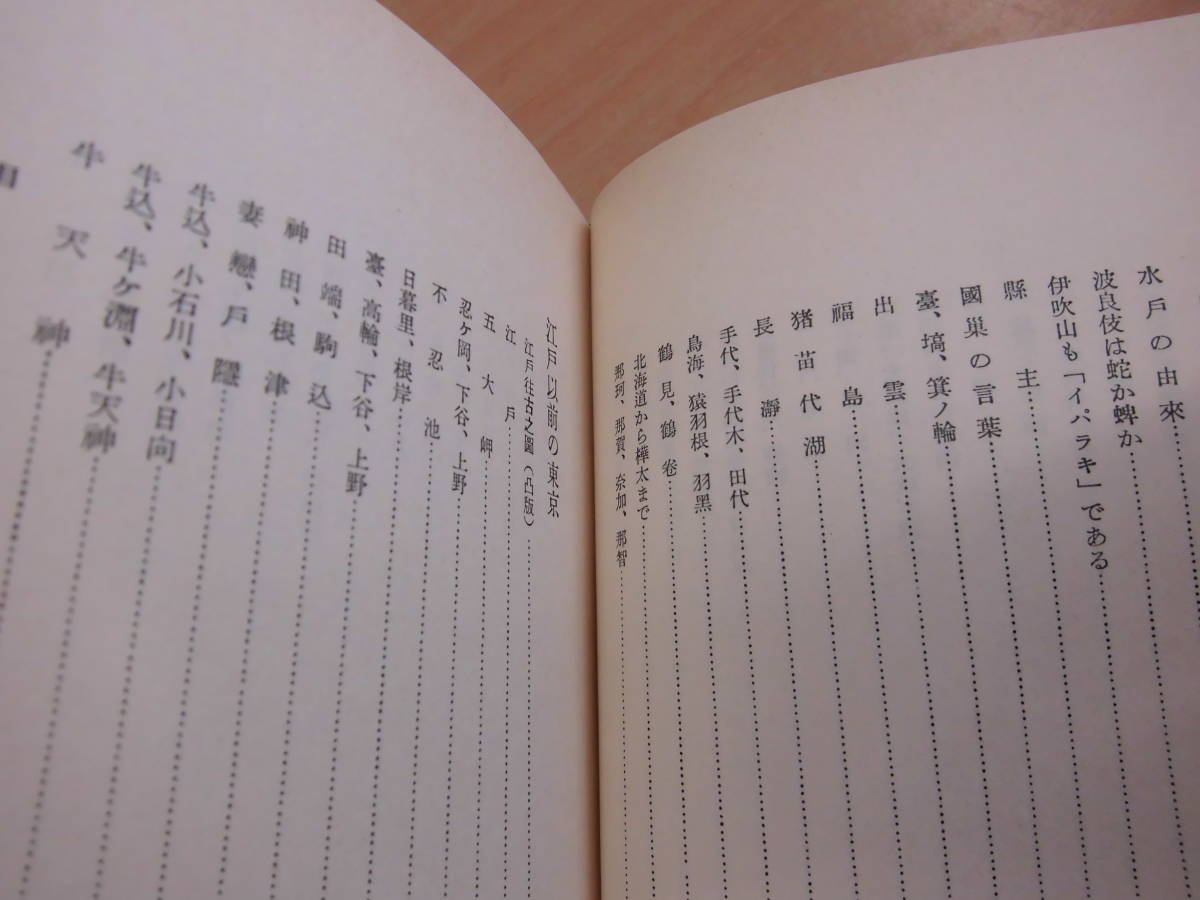 水戸の由來
波良伎は蛇か蜱か
伊吹山も「イバラキ」である
縣主
國巣の言葉
臺、塙、箕ノ輪
出雲
福島
猪苗代湖
長瀞
手代、手代木、田代
鳥海、猿羽根、羽黑
鶴見、鶴卷
北海道から樺太まで
那珂、那賀、奈加、那智
江戸以前の東京
江戸往古之圖（凸版）
江戸
五大岬
忍ケ岡、下谷、上野
不忍池
日暮里、根岸
臺、高輪、下谷、上野
田端、駒込
神田、根津
妻戀、戸隱
牛込、小石川、小日向
牛込、牛ケ淵、牛天神
牛天神